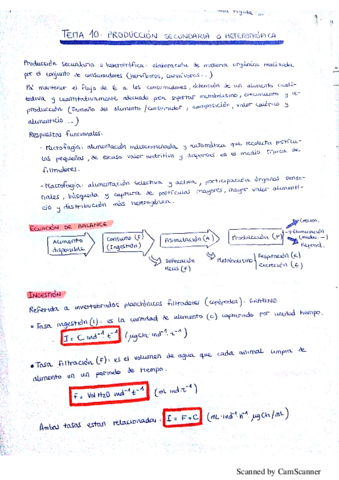 1.
TEMA 10: PRODUCCIÓN SECUNDARIA O HETEROTRÓFICA
Producción secundaria o heterotrófica: elaboración de materia orgánica realizada
por el conjunto de consumidores (herbívoros, carnívoros...)
mantener el flujo de E a los consumidores, obtención de un alimento cuali-
tativa y cuantitativamente adecuado para soportar metabolismo, crecimiento y re-
producción (tamaño del alimento/consumidor, composición, valor calórico y
alimenticio...)
Respuestas funcionales:
- Microfagia: alimentación indiscriminada y automática que recolecta partícu-
las pequeñas, de escaso valor nutritivo y dispersas en el medio típica de
filtradores.
- Macrofagia: alimentación selectiva y activa, participación órganos senso-
riales, búsqueda y captura de partículas mayores, mayor valor alimenti-
cio y distribución más heterogénea.
ECUACIÓN DE BALANCE
Alimento disponible
Consumo (I) (Ingestión)
Asimilación (A)
Producción (P)
Crecim.
Reprod.
Defecación
Heces (F)
Metabolismo
Respiración (R)
Excreción (E)
INGESTIÓN
Referida a invertebrados planctónicos filtradores (copépodos).
• Tasa ingestión (I): es la cantidad de alimento (C) capturado por unidad tiempo.
I = C ind⁻¹ t⁻¹ (µgCh ind⁻¹ t⁻¹)
• Tasa filtración (F): es el volumen de agua que cada animal limpia de
alimento en un período de tiempo.
F = Vol H2O ind⁻¹ t⁻¹ (mL ind t⁻¹)
Ambas tasas están relacionadas: I = F × C (mL · ind⁻¹ h⁻¹ µgCh/mL)
Scanned by CamScanner